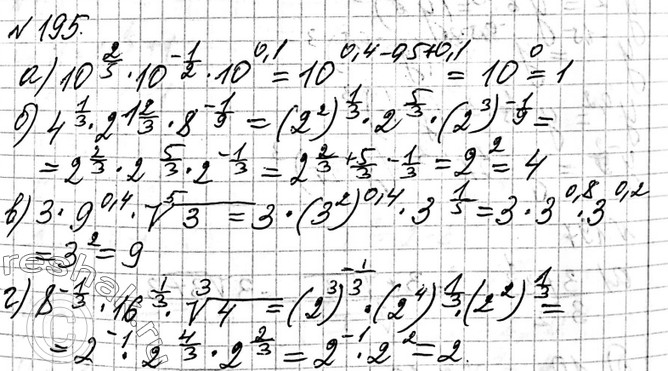 № 195.
а) 10^(2/5) · 10^(-1/2) · 10^(0,1) = 10^(0,4-0,5+0,1) = 10^0 = 1
б) 4^(1/3) · 2^(1 2/3) · 8^(-1/9) = (2^2)^(1/3) · 2^(5/3) · (2^3)^(-1/9) =
= 2^(2/3) · 2^(5/3) · 2^(-1/3) = 2^(2/3+5/3-1/3) = 2^2 = 4
в) 3 · 9^(0,4) · ⁵√3 = 3 · (3^2)^(0,4) · 3^(1/5) = 3 · 3^(0,8) · 3^(0,2)
= 3^2 = 9
г) 8^(-1/3) · 16^(1/3) · ³√4 = (2^3)^(-1/3) · (2^4)^(1/3) · (2^2)^(1/3) =
= 2^(-1) · 2^(4/3) · 2^(2/3) = 2^(-1) · 2^2 = 2.